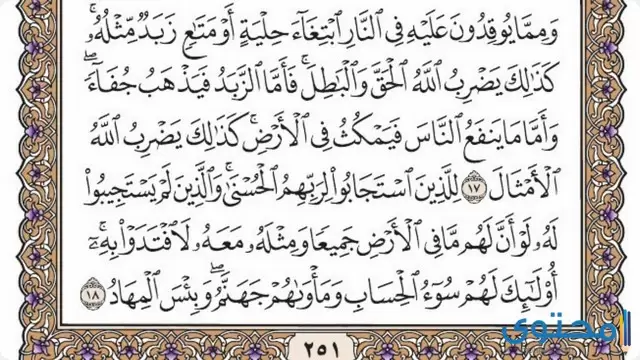 وَمِمَّا يُوقِدُونَ عَلَيْهِ فِي ٱلنَّارِ ٱبْتِغَآءَ حِلْيَةٍ أَوْ مَتَٰعٍ زَبَدٌ مِّثْلُهُۥۚ
كَذَٰلِكَ يَضْرِبُ ٱللَّهُ ٱلْحَقَّ وَٱلْبَٰطِلَۚ فَأَمَّا ٱلزَّبَدُ فَيَذْهَبُ جُفَآءًۖ
وَأَمَّا مَا يَنفَعُ ٱلنَّاسَ فَيَمْكُثُ فِي ٱلْأَرْضِۚ كَذَٰلِكَ يَضْرِبُ ٱللَّهُ
ٱلْأَمْثَالَ ١٧ لِلَّذِينَ ٱسْتَجَابُوا۟ لِرَبِّهِمُ ٱلْحُسْنَىٰۚ وَٱلَّذِينَ لَمْ يَسْتَجِيبُوا۟
لَهُۥ لَوْ أَنَّ لَهُم مَّا فِي ٱلْأَرْضِ جَمِيعًا وَمِثْلَهُۥ مَعَهُۥ لَٱفْتَدَوْا۟ بِهِۦٓۚ
أُو۟لَٰٓئِكَ لَهُمْ سُوٓءُ ٱلْحِسَابِ وَمَأْوَىٰهُمْ جَهَنَّمُۖ وَبِئْسَ ٱلْمِهَادُ ١٨
٢٥١
محتوى